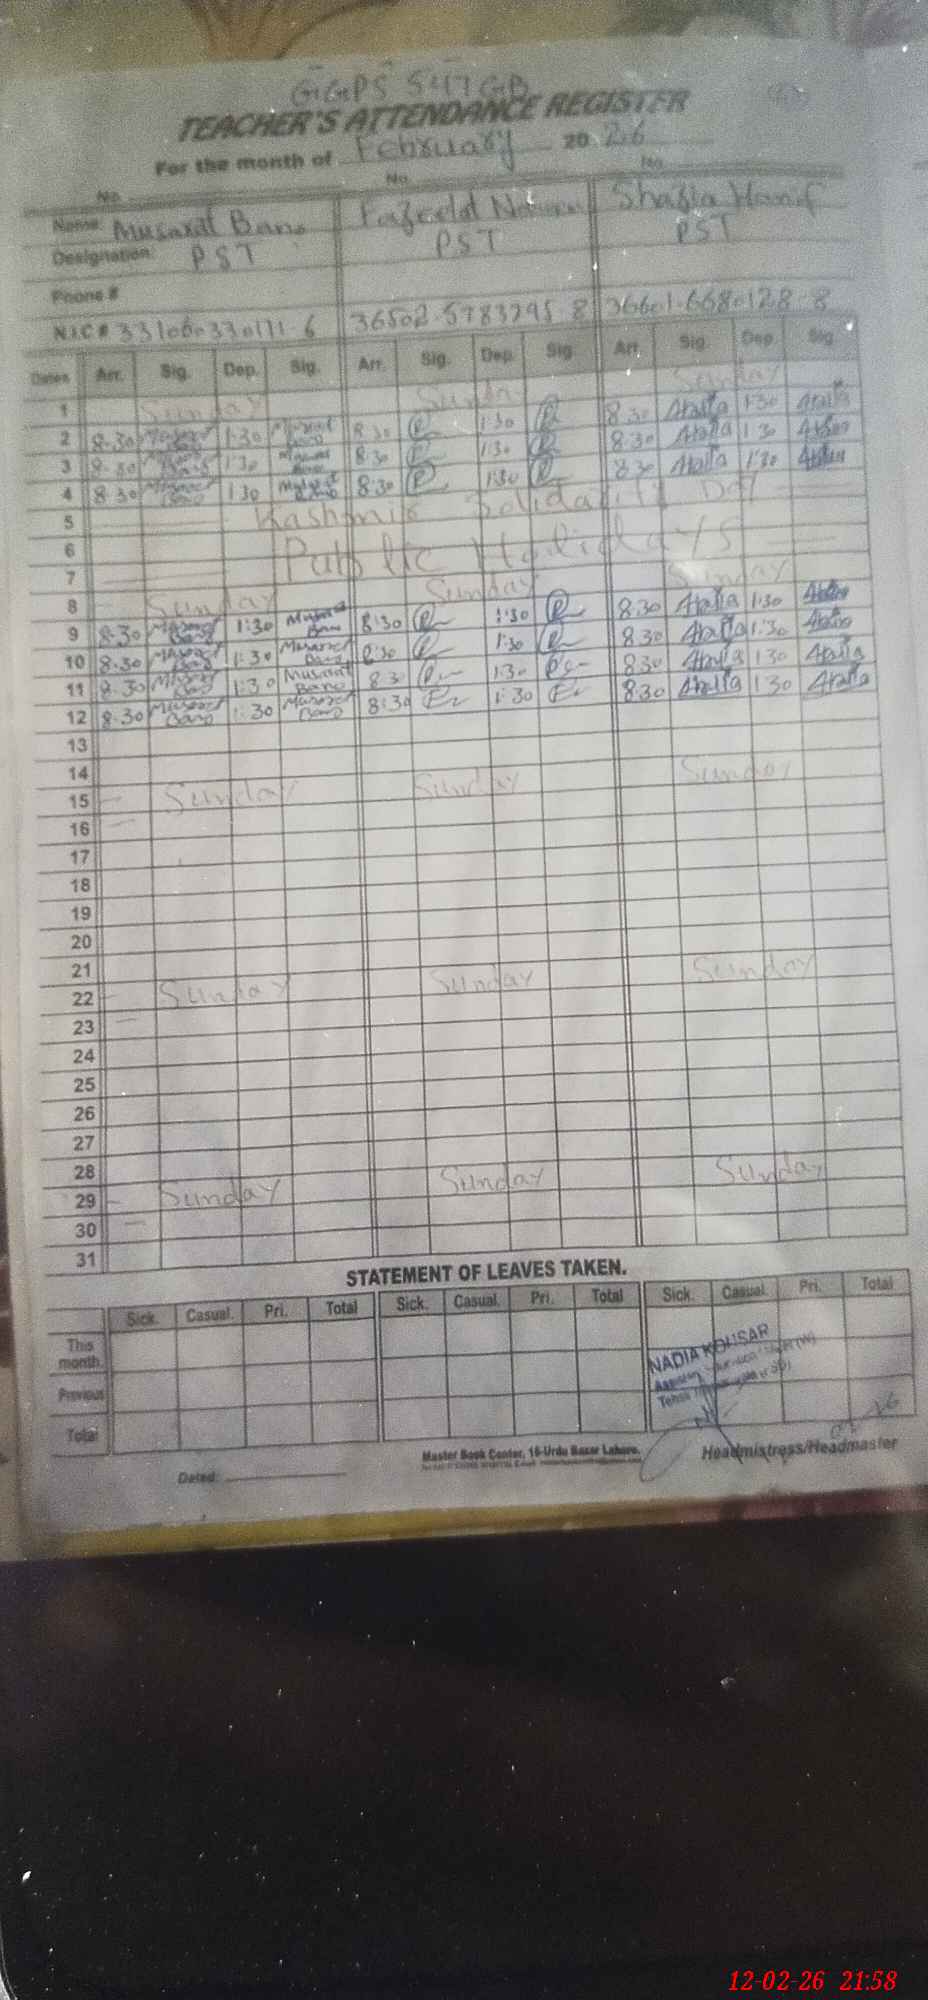 GGPS 547 GB
TEACHER'S ATTENDANCE REGISTER
For the month of February 20 26
No. No. No.
Name: Musarat Bano Shazia Hanif
Designation: PST PST PST
Phone #
N.I.C #
Dates Arr. Sig. Dep. Sig. Arr. Sig. Dep. Sig. Arr. Sig. Dep. Sig.
1 Sunday Sunday Sunday
2 8.30 1:30 Musarat Bano 8:30 1:30 8:30 1:30
3 8.30 1:30 8:30 1:30 8:30 1:30
4 8:30 Musarat Bano 1:30 Musarat Bano 8:30 1:30 8:30 1:30
5 Kashmir Solidarity Day
6
7 Public Holidays
8 Sunday Sunday Sunday
9 8.30 Musarat Bano 1:30 Musarat Bano 8:30 1:30 8:30 1:30
10 8.30 Musarat Bano 1:30 Musarat Bano 8:30 1:30 8:30 1:30
11 8.30 Musarat Bano 1:30 Musarat Bano 8:30 1:30 8:30 1:30
12 8.30 Musarat Bano 1:30 Musarat Bano 8:30 1:30 8:30 1:30
13
14
15 Sunday Sunday Sunday
16
17
18
19
20
21
22 Sunday Sunday Sunday
23
24
25
26
27
28
29 Sunday Sunday Sunday
30
31
STATEMENT OF LEAVES TAKEN.
Sick. Casual. Pri. Total Sick. Casual. Pri. Total Sick. Casual. Pri. Total
This month.
Previous
Total
NADIA KOUSAR
Master Book Center, 16-Urdu Bazar Lahore.
Headmistress/Headmaster
Dated:
12-02-26 21:58